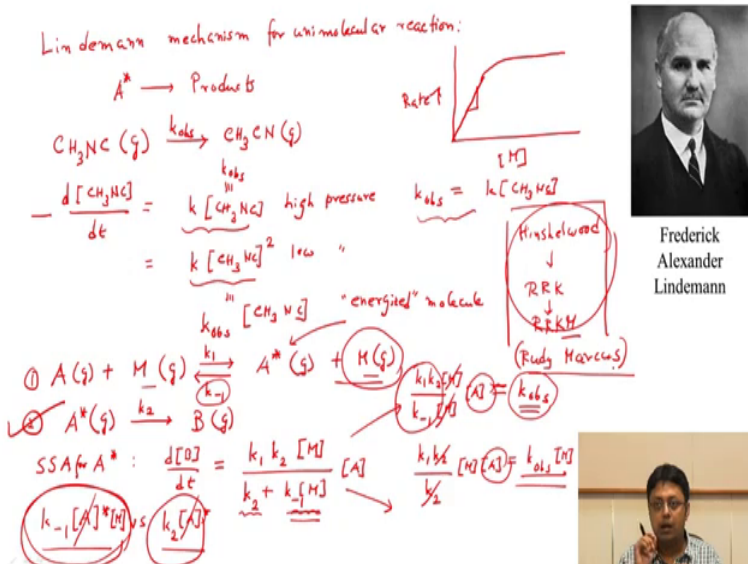 Lindemann mechanism for unimolecular reaction:
A* → Products
Rate ↑
[M]
CH₃NC (g) —k_obs→ CH₃CN (g)
k_obs
− d[CH₃NC]/dt = k [CH₃NC] high pressure
k_obs = k[CH₃NC]
= k [CH₃NC]² low "
k_obs [CH₃NC]
"energized" molecule
Hinshelwood
↓
RRK
↓
RRKM
(Rudy Marcus)
① A(g) + M(g) ⇌ A*(g) + M(g)
k₁
k₋₁
② A*(g) —k₂→ B(g)
k₁k₂[M] / k₋₁[M] [A] = k_obs
SSA for A* : d[B]/dt = k₁ k₂ [M] / k₂ + k₋₁[M] [A]
k₁k₂ / k₂ [M] [A] = k_obs [M]
k₋₁ [A]* [M] vs k₂[A]*
Frederick
Alexander
Lindemann